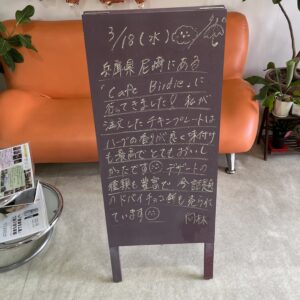 3/18(水)
兵庫県尼崎にある
"Cafe Birdie"に
行ってきました!私が
注文したチキンプレートは
ハーブの香りが良く味付け
も最高でとてもおいし
かったです デザートの
種類も豊富で 今話題
のドバイチョコ餅も売られ
ています